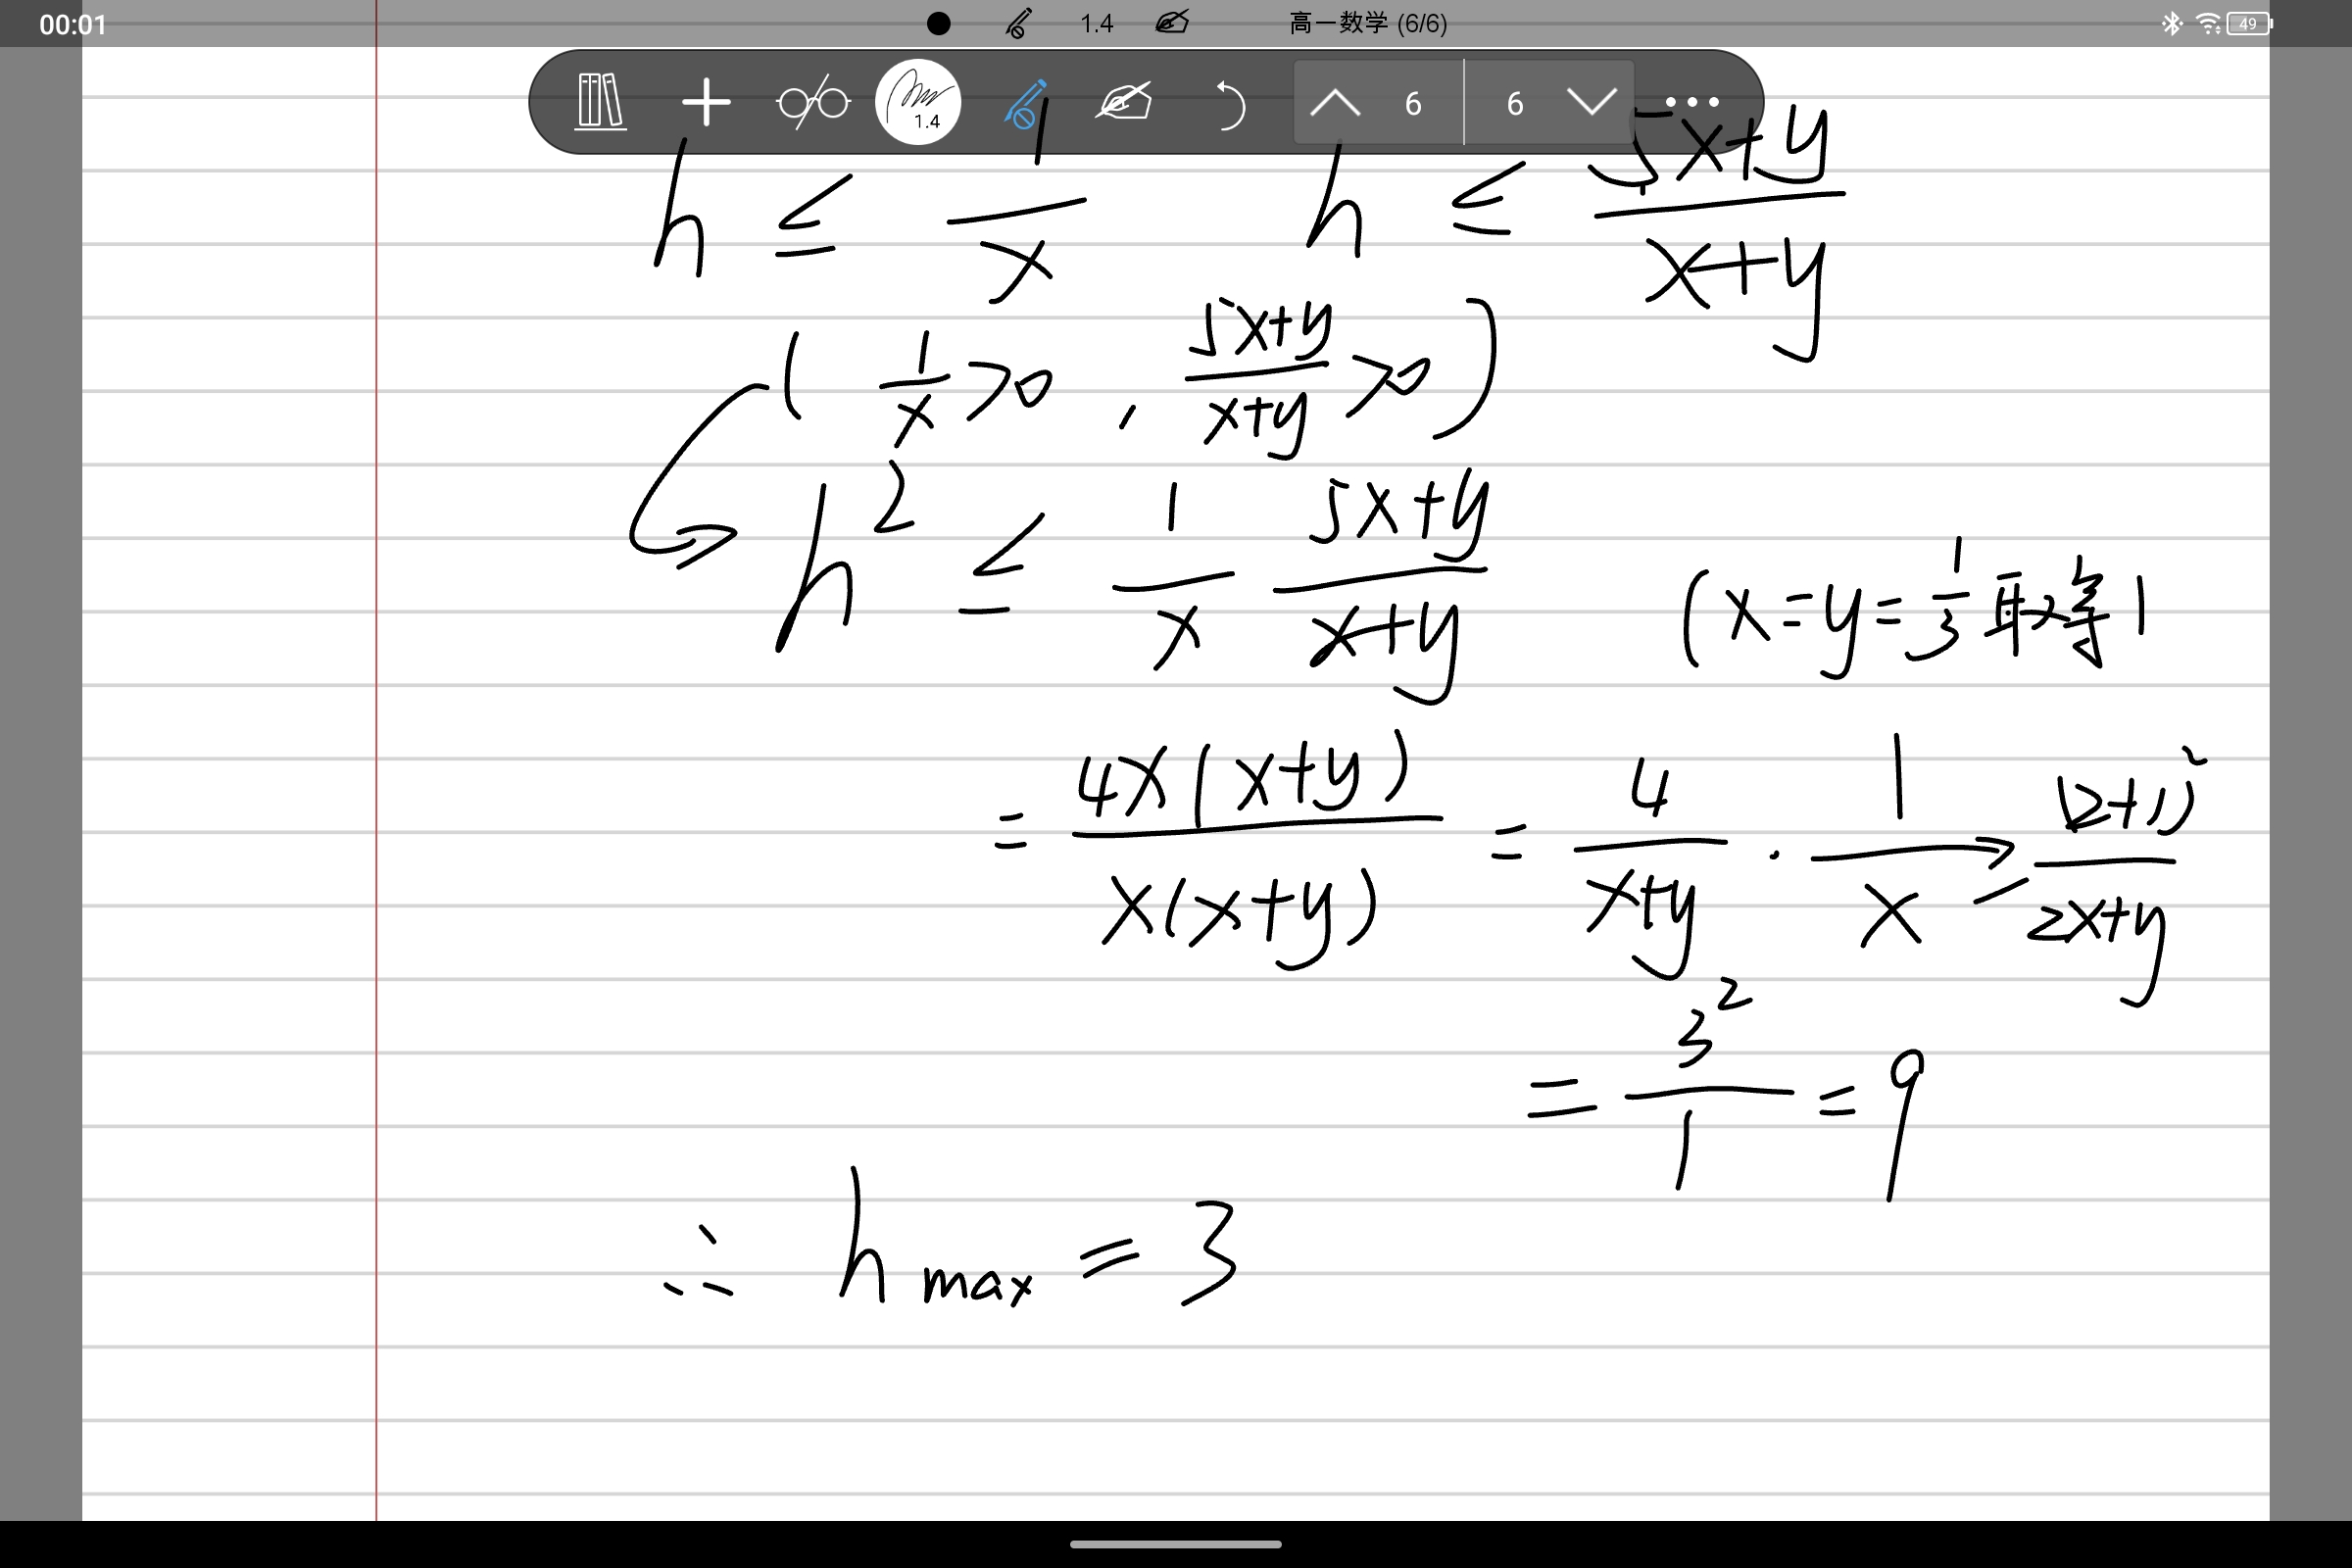 00:01 1.4 高一数学 (6/6) 49
1.4 6 6
h ≤ 1/x h ≤ (5x+y)/(x+y)
( 1/x >0 , (5x+y)/(x+y) >0 )
h² ≤ 1/x (5x+y)/(x+y) (x=y=1/3 取等)
= 4x(x+y)/x(x+y) = 4/(x+y) · 1/x ≥ (2+1)²/2x+y
= 3²/1 = 9
∴ h max = 3